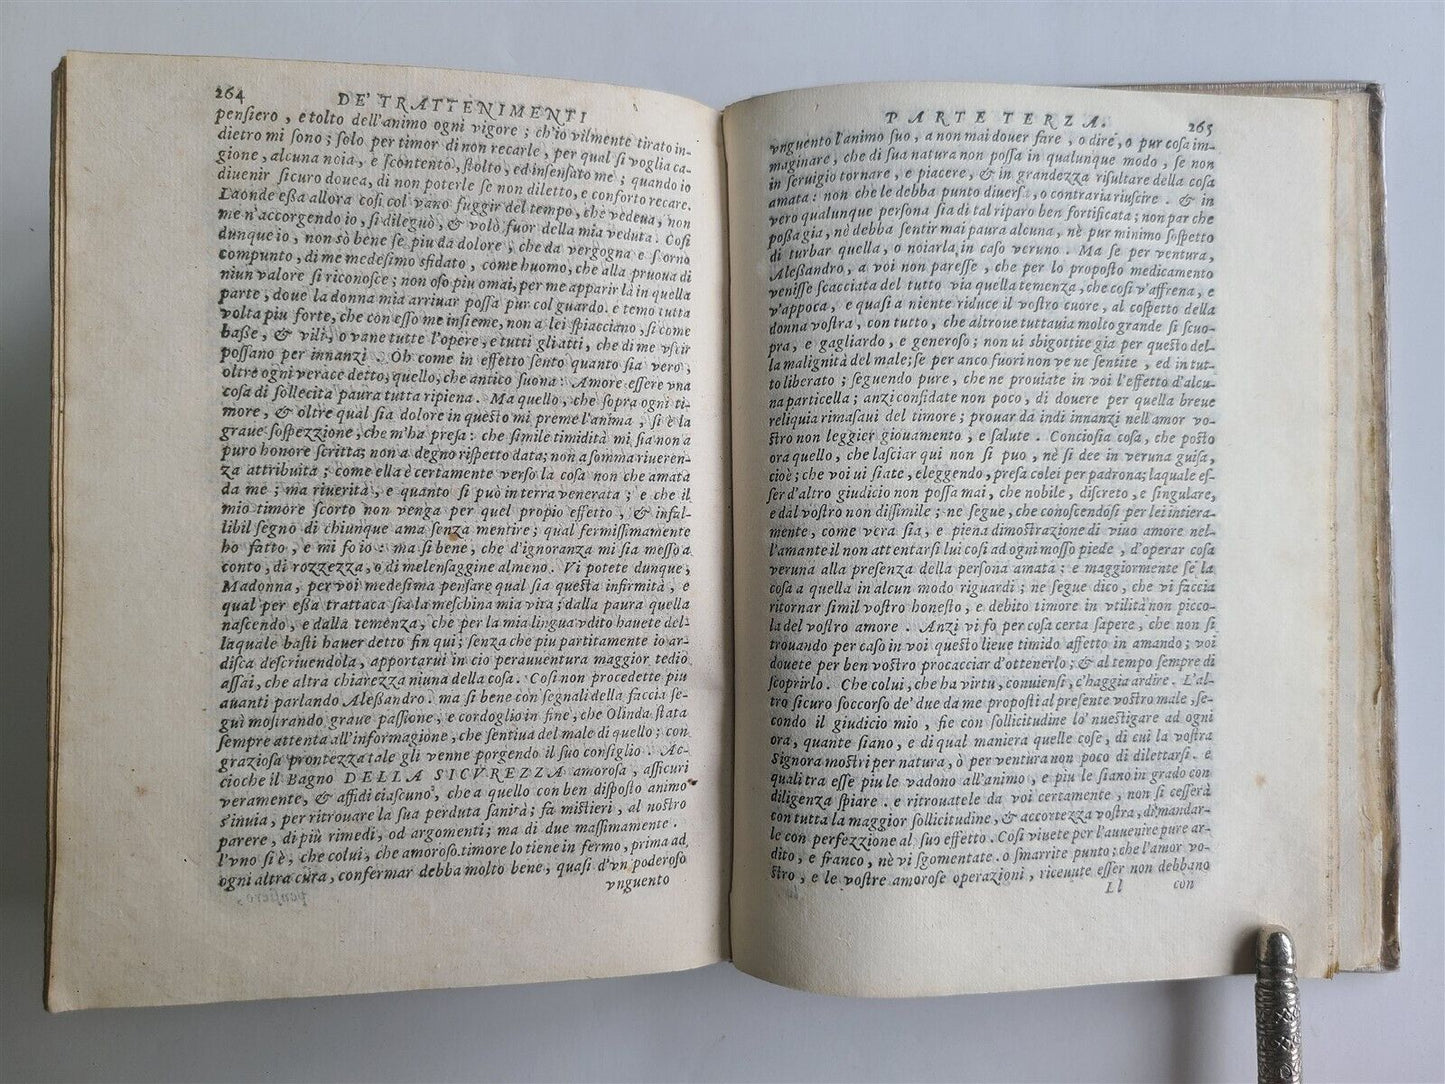 264
DE' TRATTENIMENTI
pensiero, e tolto dell'animo ogni vigore; ch'io vilmente tirato in-
dietro mi sono; solo per timor di non recarle, per qual si voglia ca-
gione, alcuna noia, e scontento, stolto, ed insensato me; quando io
diuenir sicuro douea, di non poterle se non diletto, e conforto recare.
Laonde eßa allora così col vano fuggir del tempo, che vedeua, non
me n'accorgendo io, si dileguò, & volò fuor della mia veduta. Così
dunque io, non sò bene se piu da dolore, che da vergogna e scorno
compunto, di me medesimo sfidato, come huomo, che alla pruoua di
niun valore si riconosce; non oso piu omai, per me apparir là in quella
parte, doue la donna mia arriuar possa pur col guardo. e temo tutta
volta piu forte, che con esso me insieme, non a lei spiacciano, sì come
baße, & vili, o vane tutte l'opere, e tutti gli atti, che di me vscir
possano per innanzi. Oh come in effetto sento quanto sia vero,
oltre ogni verace detto, quello, che antico suona: Amore essere vna
cosa di sollecita paura tutta ripiena. Ma quello, che sopra ogni ti-
more, & oltre qual sia dolore in questo mi preme l'anima, si è la
graue sospezzione, che m'ha presa: che simile timidità mi sia non a
puro honore scritta; non a degno rispetto data; non a somma riueren-
za attribuita; come ella è certamente verso la cosa non che amata
da me; ma riuerita, e quanto si può in terra venerata; e che il
mio timore scorto non venga per quel propio effetto, & infal-
libil segno di chiunque ama senza mentire; qual fermissimamente
ho fatto, e mi fo io: ma si bene, che d'ignoranza mi sia messo a
conto, di rozzezza, o di melensaggine almeno. Vi potete dunque,
Madonna, per voi medesima pensare qual sia questa infirmità, e
qual per eßa trattata sia la meschina mia vita; dalla paura quella
nascendo, e dalla temenza, che per la mia lingua vdito hauete del-
laquale basti hauer detto fin qui; senza che piu partitamente io ar-
disca descriuendola, apportarui in cio perauuentura maggior tedio
assai, che altra chiarezza niuna della cosa. Così non procedette piu
auanti parlando Aleßandro. ma si bene con segnali della faccia se-
guì mostrando graue passione, e cordoglio in fine, che Olinda stata
sempre attenta all'informagione, che sentiua del male di quello; con
graziosa prontezza tale gli venne porgendo il suo consiglio. Ac-
cioche il Bagno DELLA SICVREZZA amorosa, assicuri
veramente, & affidi ciascuno, che a quello con ben disposto animo
s'inuia, per ritrouare la sua perduta sanità; fa mistieri, al nostro
parere, di più rimedi, od argomenti; ma di due massimamente.
l'vno si è, che colui, che amoroso timore lo tiene in fermo, prima ad
ogni altra cura, confermar debba molto bene, quasi d'vn poderoso
vnguento
PARTE TERZA.
265
vnguento l'animo suo, a non mai douer fare, o dire, o pur cosa im-
maginare, che di sua natura non possa in qualunque modo, se non
in seruigio tornare, e piacere, & in grandezza risultare della cosa
amata: non che le debba punto diuersa, o contraria riuscire. & in
vero qualunque persona sia di tal riparo ben fortificata; non par che
possa gia, nè debba sentir mai paura alcuna, nè pur minimo sospetto
di turbar quella, o noiarla in caso veruno. Ma se per ventura,
Aleßandro, a voi non paresse, che per lo proposto medicamento
venisse scacciata del tutto via quella temenza, che così v'affrena, e
v'appoca, e quasi a niente riduce il vostro cuore, al cospetto della
donna vostra, con tutto, che altroue tuttauia molto grande si scuo-
pra, e gagliardo, e generoso; non ui sbigottite già per questo del-
la malignità del male; se per anco fuori non ve ne sentite, ed in tut-
to liberato; seguendo pure, che ne prouiate in voi l'effetto d'alcu-
na particella; anzi confidate non poco, di douere per quella breue
reliquia rimasaui del timore; prouar da indi innanzi nell'amor vo-
stro non leggier giouamento, e salute. Conciosia cosa, che posto
ora quello, che lasciar qui non si puo, nè si dee in veruna guisa,
cioè; che voi ui siate, eleggendo, presa colei per padrona; laquale es-
ser d'altro giudicio non possa mai, che nobile, discreto, e singulare,
e dal vostro non dissimile; ne segue, che conoscendosi per lei intiera-
mente, come vera sia, e piena dimostrazione di viuo amore nel-
l'amante il non attentarsi lui così ad ogni mosso piede, d'operar cosa
veruna alla presenza della persona amata: e maggiormente se la
cosa a quella in alcun modo riguardi; ne segue dico, che vi faccia
ritornar simil vostro honesto, e debito timore in vtilità non picco-
la del vostro amore. Anzi vi fo per cosa certa sapere, che non si
trouando per caso in voi questo lieue timido affetto in amando; voi
douete per ben vostro procacciar d'ottenerlo; & al tempo sempre di
scoprirlo. Che colui, che ha virtù, conuiensi, c'haggia ardire. L'al-
tro sicuro soccorso de' due da me proposti al presente vostro male, se-
condo il giudicio mio, fie con sollicitudine lo 'nuestigare ad ogni
ora, quante siano, e di qual maniera quelle cose, di cui la vostra
Signora mostri per natura, ò per ventura non poco di dilettarsi. e
quali tra esse piu le vadono all'animo, e piu le siano in grado con
diligenza spiare. e ritrouatele da voi certamente, non si cesserà
con tutta la maggior sollicitudine, & accortezza vostra, di mandar-
le con perfezzione al suo effetto. Così viuete per l'auuenire pure ar-
dito, e franco, nè vi sgomentate. o smarrite punto; che l'amor vo-
stro, e le vostre amorose operazioni, riceuute esser non debbano
Ll con